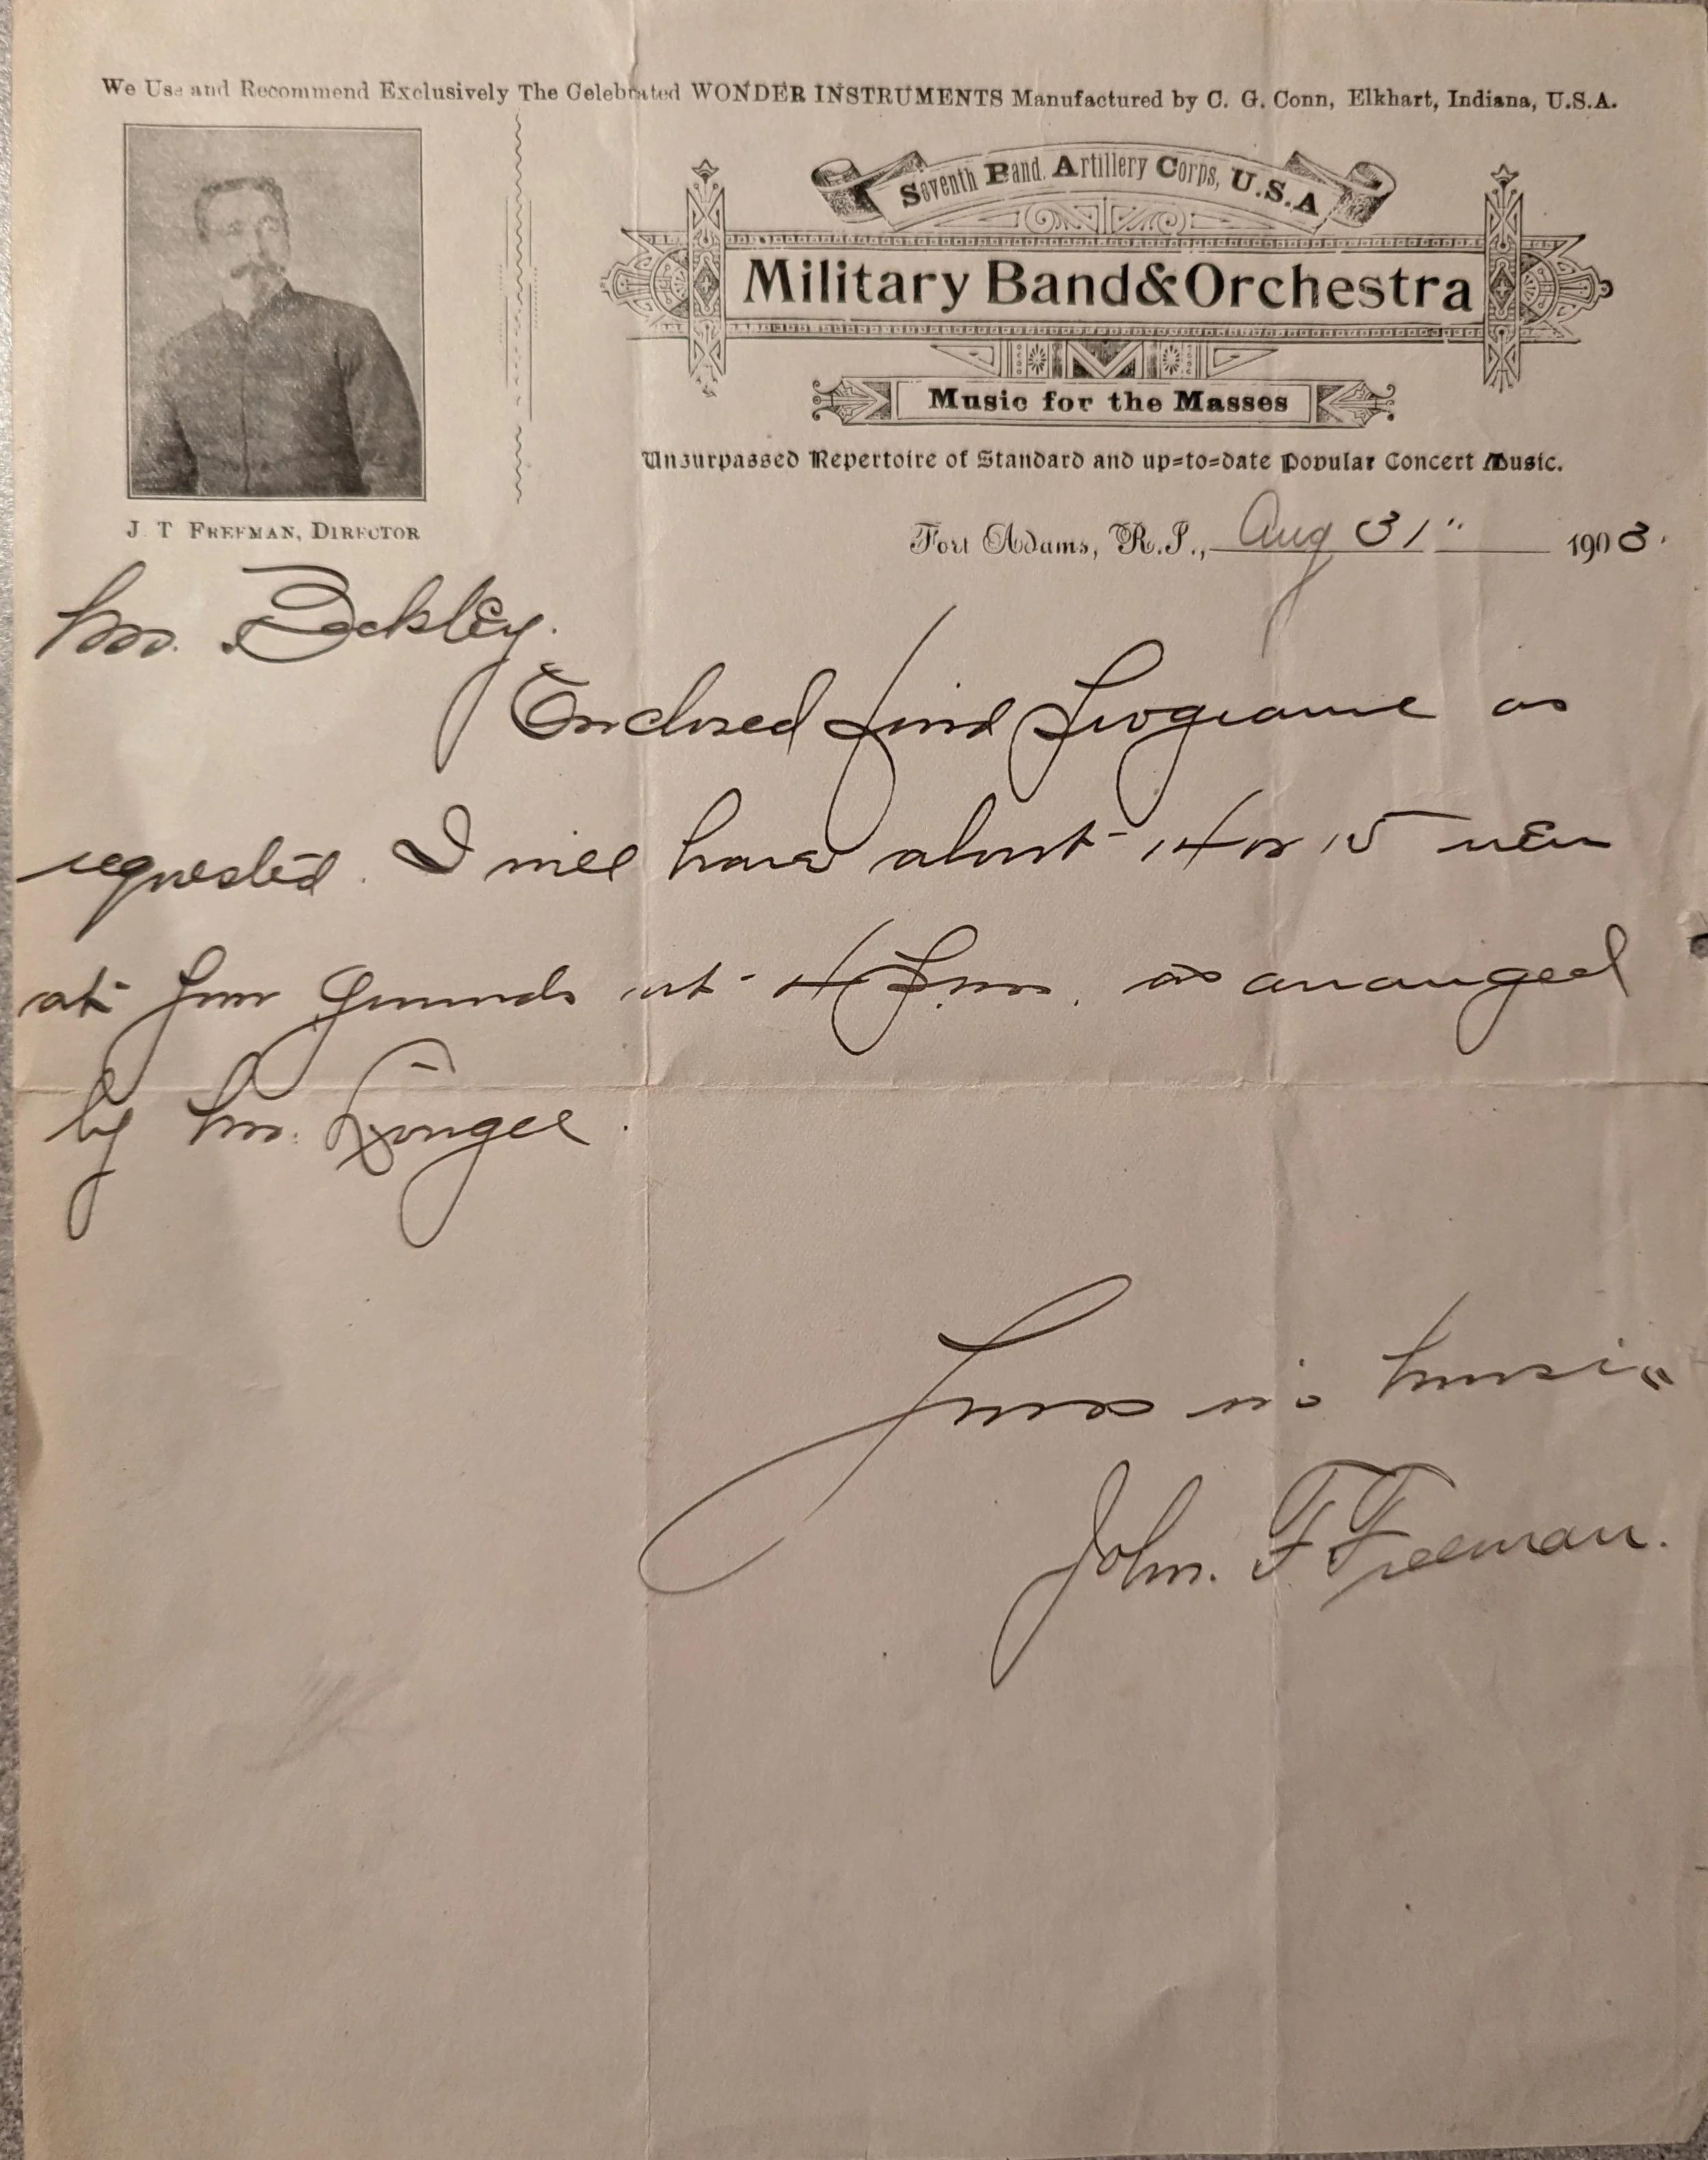 We Use and Recommend Exclusively The Celebrated WONDER INSTRUMENTS Manufactured by C. G. Conn, Elkhart, Indiana, U.S.A.
Seventh Band, Artillery Corps, U.S.A
Military Band & Orchestra
Music for the Masses
Unsurpassed Repertoire of Standard and up=to=date Popular Concert Music.
J. T. FREEMAN, DIRECTOR
Fort Adams, R.I., Aug 31" 1903.
Mr.
Enclosed find Programme as
requested. I will have about 14 or 15 men
at your grounds at 4 P.m. as arranged
by Mr.
Yours in Music
John. F Freeman.